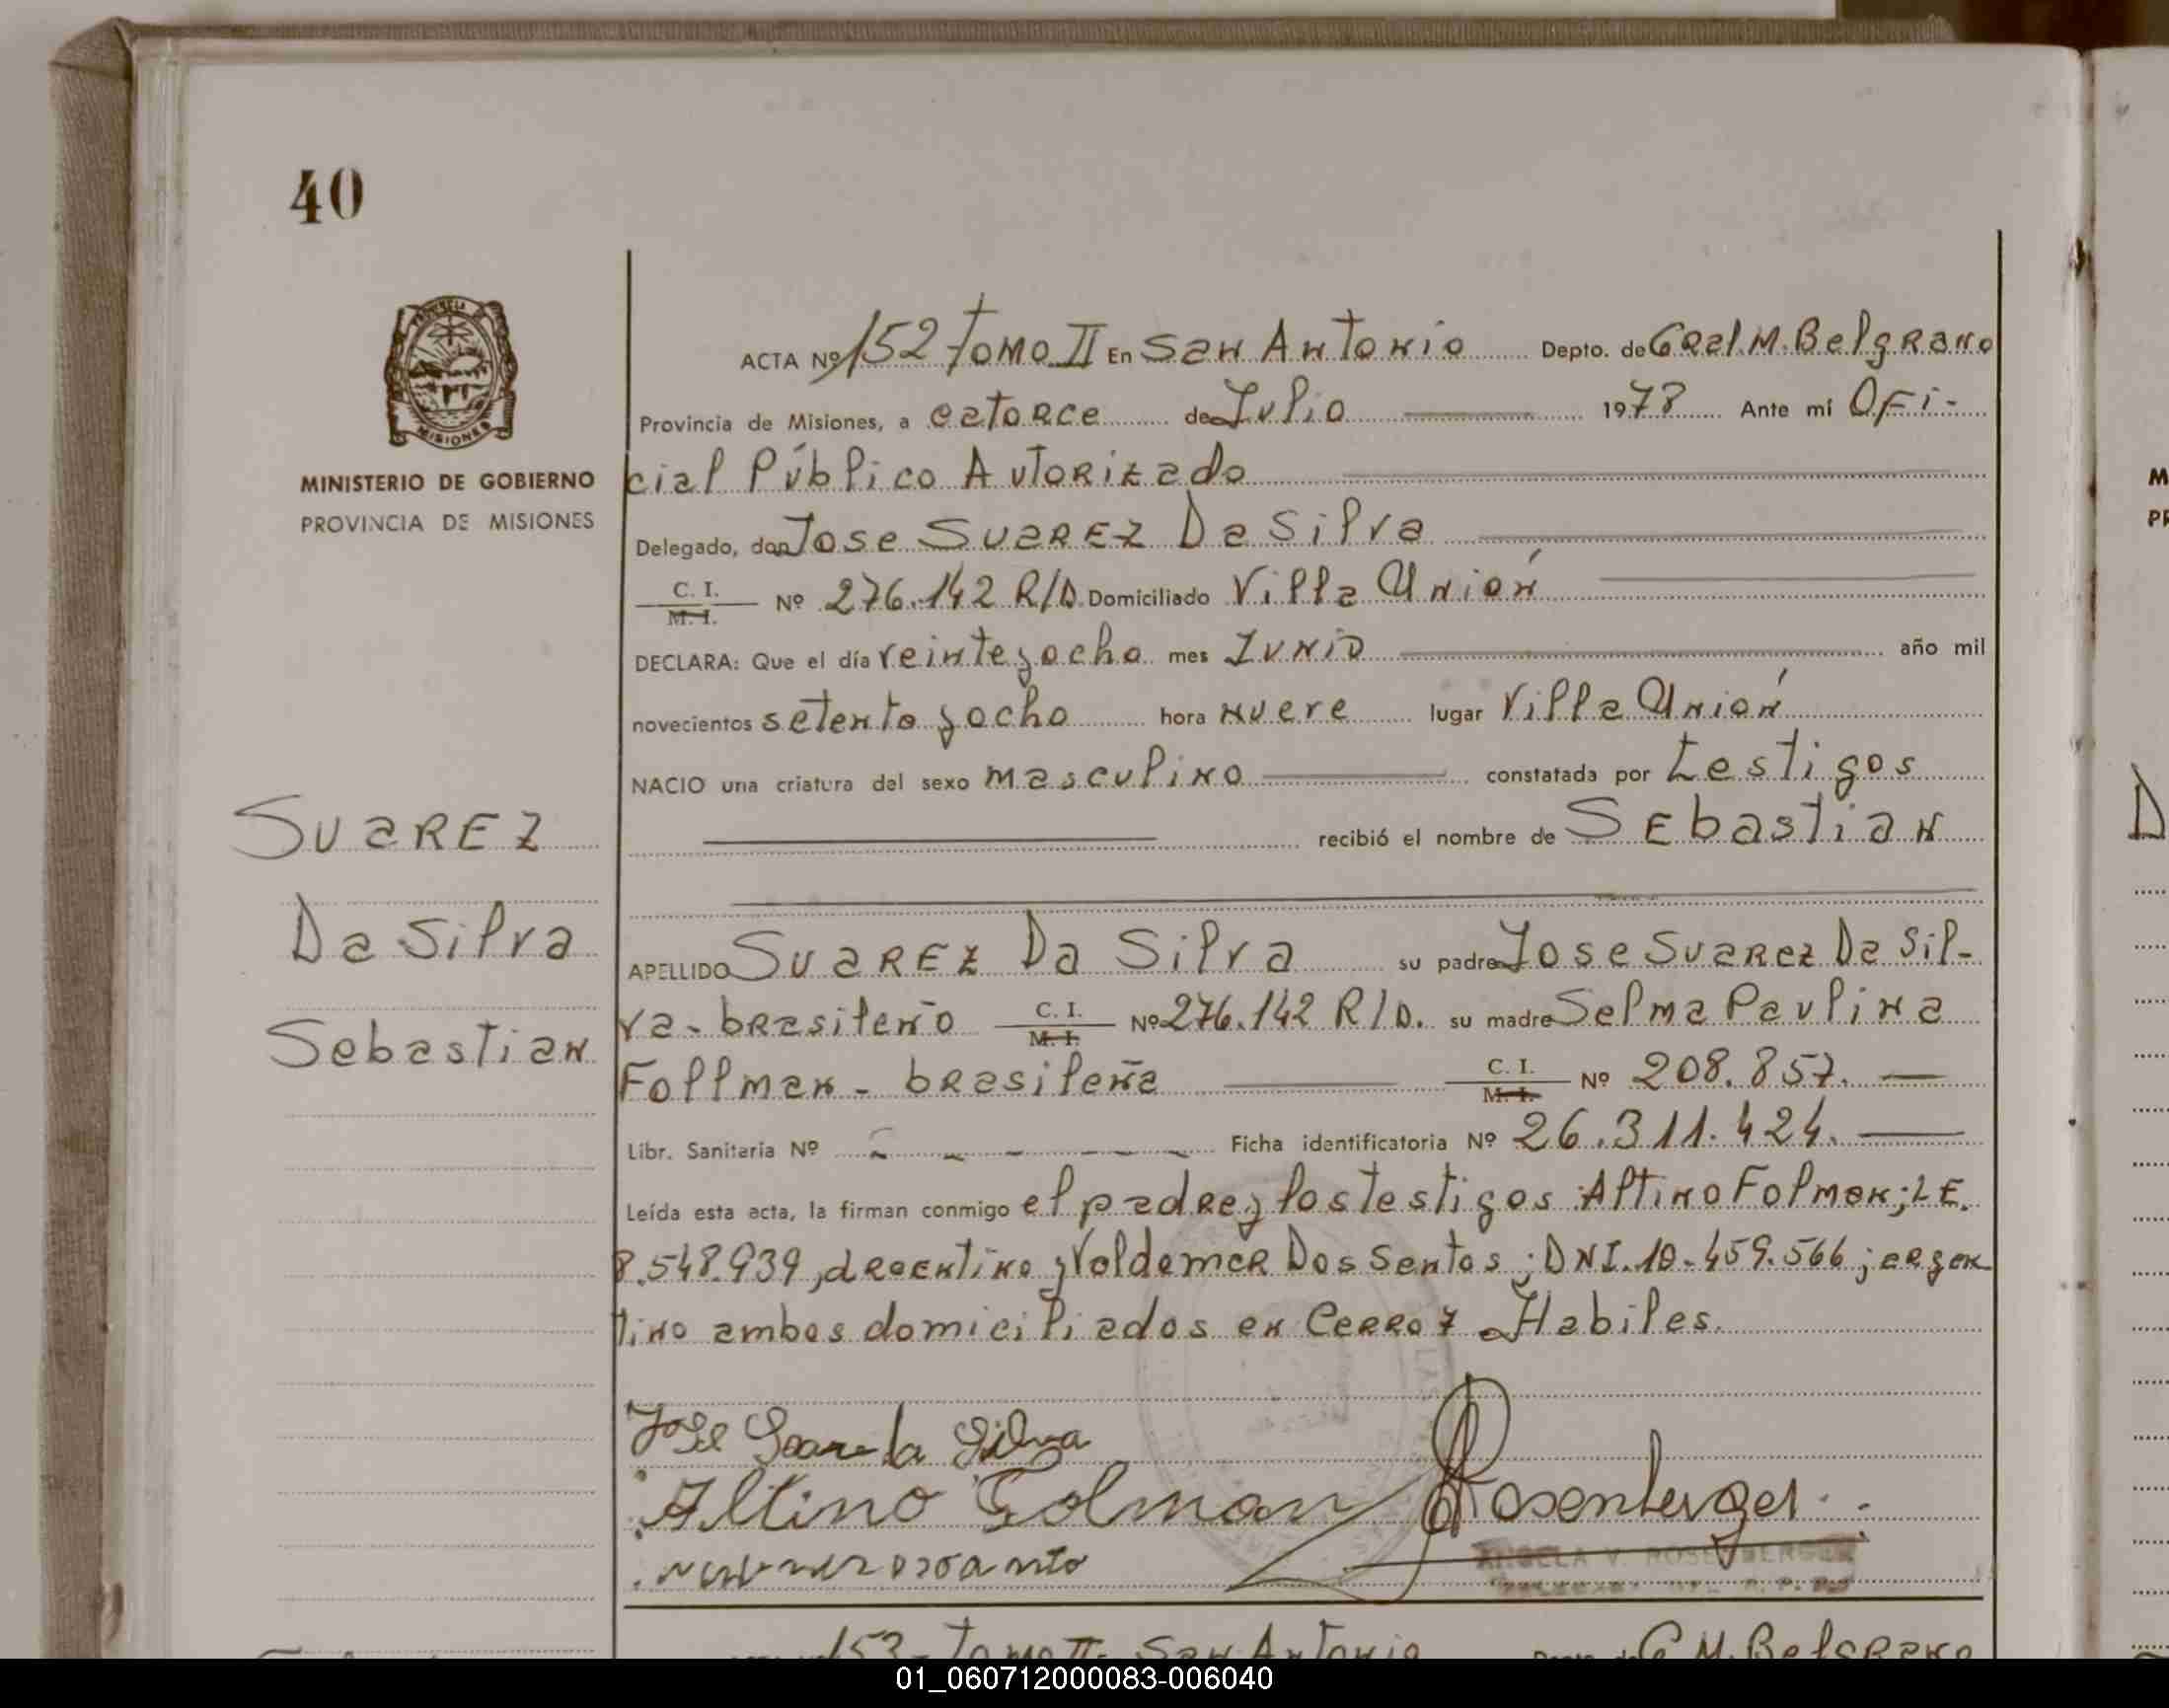 40
MINISTERIO DE GOBIERNO
PROVINCIA DE MISIONES
ACTA Nº 152 Tomo II En San Antonio Depto. de Gral. M. Belgrano
Provincia de Misiones, a catorce de Julio 1978 Ante mí Ofi-
cial Público Autorizado
Delegado, don Jose Suarez Da Silva
C. I. M. I. Nº 276.142 R/D. Domiciliado Villa Unión
DECLARA: Que el día veinteyocho mes Junio año mil
novecientos setenta y ocho hora nueve lugar Villa Unión
NACIO una criatura del sexo masculino constatada por testigos
recibió el nombre de Sebastian
APELLIDO Suarez Da Silva su padre Jose Suarez Da Sil-
va - brasileño C. I. M. I. Nº 276.142 R/D. su madre Selma Paulina
Follman - brasileña C. I. M. I. Nº 208.857.
Libr. Sanitaria Nº Ficha identificatoria Nº 26.311.424.
Leída esta acta, la firman conmigo el padre y los testigos Altino Folman; L.E.
8.548.939, argentino y Valdemar Dos Santos; DNI. 10.459.566; argen
tino ambos domiciliados en Cerro 7 Habiles.
Suarez
Da Silva
Sebastian
Jose Da Silva
Altino Folman
Rosenberger
ANGELA V. ROSENBERGER
153 - Tomo II - San Antonio G. M. Belgrano
01_060712000083-006040